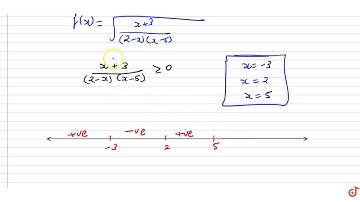 f(x) = √((x+3)/((2-x)(x-5)))
(x+3)/((2-x)(x-5)) ≥ 0
x = -3
x = 2
x = 5
+ve -ve +ve
-3 2 5